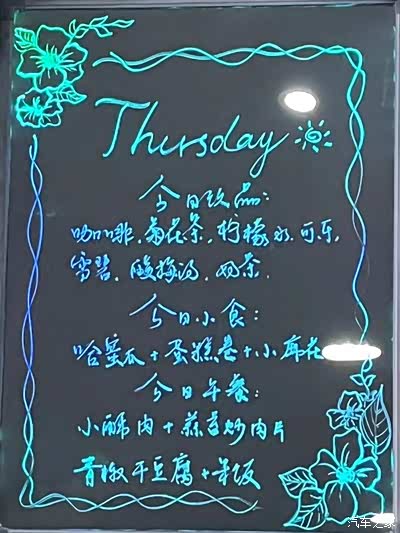 Thursday
今日饮品:
咖啡.菊花茶.柠檬水.可乐,
雪碧.酸梅汤.奶茶.
今日小食:
哈蜜瓜+蛋糕卷+小麻花
今日午餐:
小酥肉+蒜苔炒肉片
青椒干豆腐+米饭
汽车之家